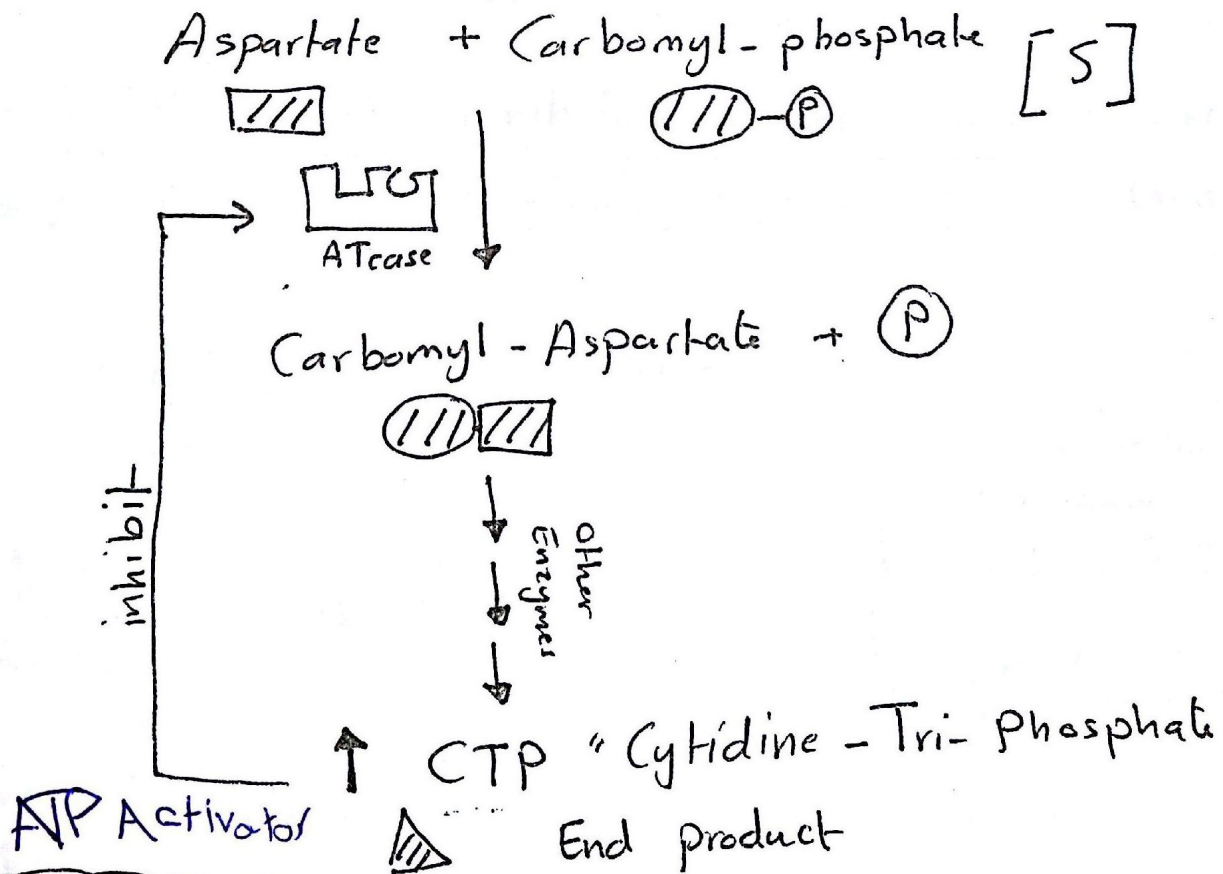 Aspartate + Carbomyl-phosphate [S]
P
ATcase
Carbomyl-Aspartate + P
inhibit
Other
Enzymes
↑ CTP " Cytidine-Tri-Phosphate
ATP Activator
End product